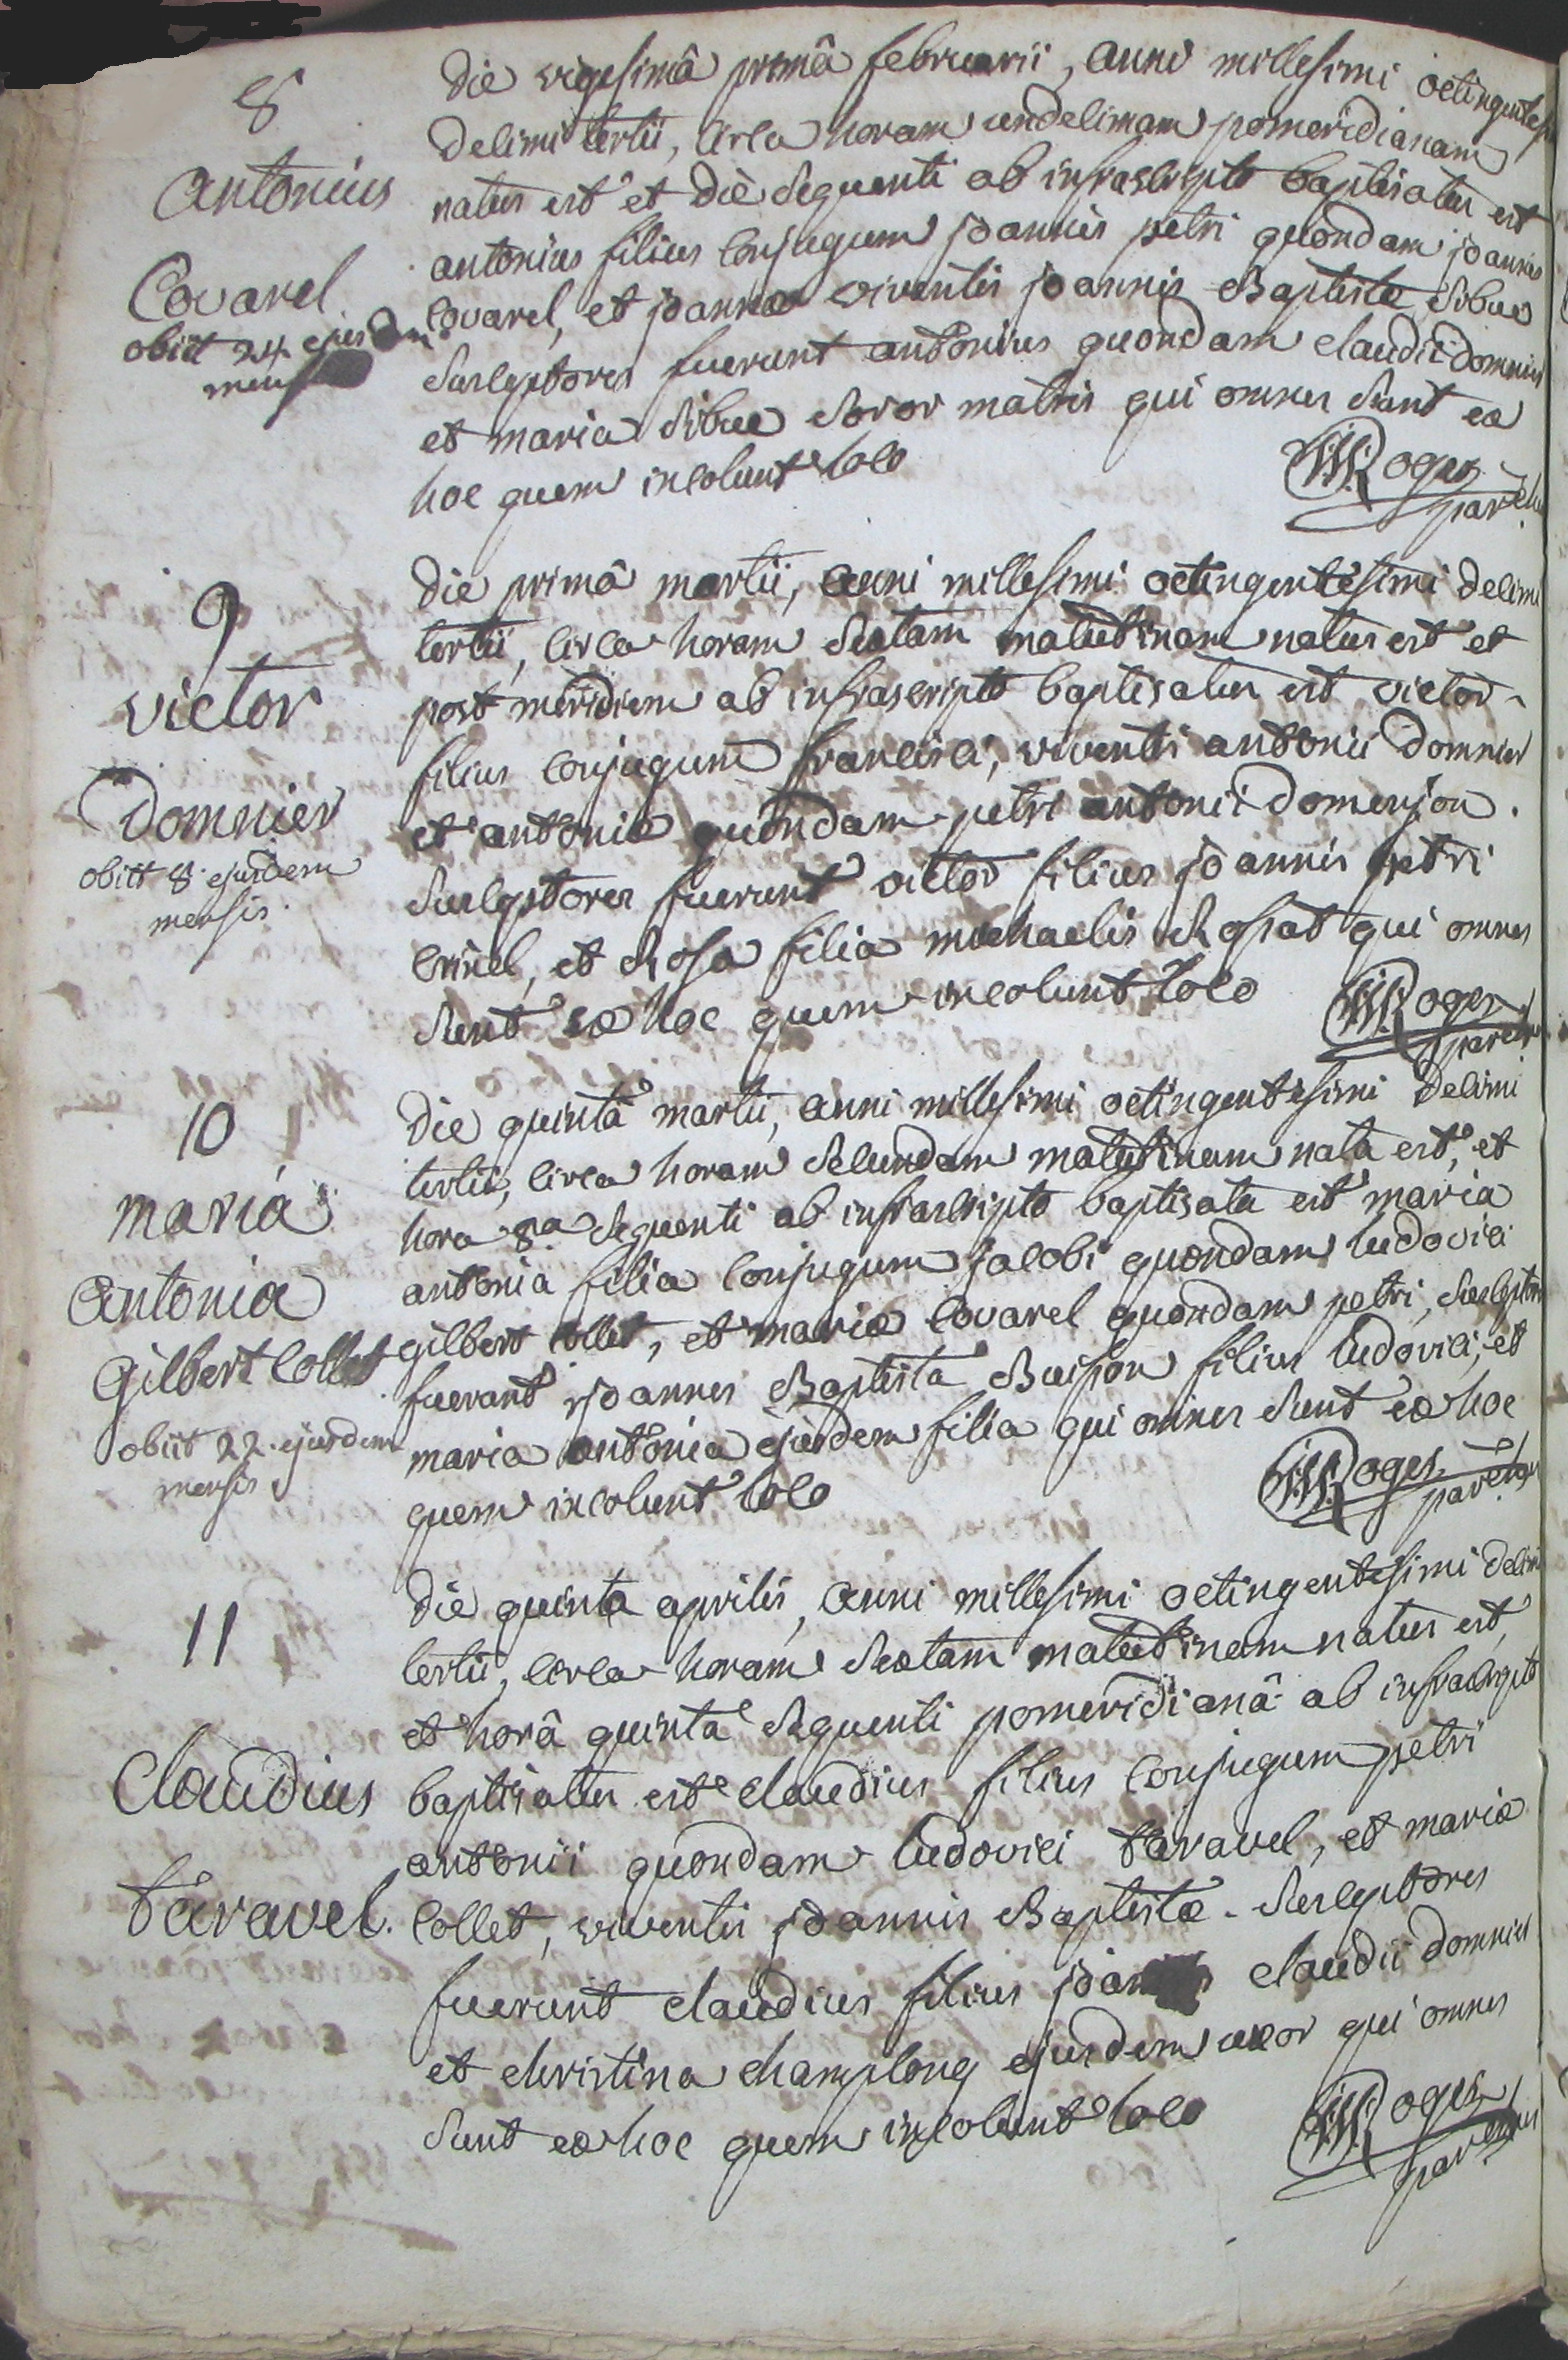 8
Antonius
Covarel
obiit 24 ejusdem
mensis
die vigesimâ primâ februarii, anni millesimi octingentesi
decimi tertii, circa horam undecimam pomeridianam
natus est et die sequenti ab infrascripto baptisatus est
antonius filius conjugum joannis petri quondam joannis
Covarel, et joannæ viventis joannis Baptistæ Sibue
Susceptores fuerunt antonius quondam claudii domnier
et maria Sibue Soror matris qui omnes Sunt ex
hoc quem incolunt loco
Roges
parochus
9
victor
Domnier
obiit 8 ejusdem
mensis.
die primâ martii, anni millesimi octingentesimi decimi
tertii, circa horam Sextam matutinam natus est et
post meridiem ab infrascripto baptisatus est victor
filius conjugum francisci, viventis antonii Domnier
et antoniæ quondam petri antonii domenjon.
Susceptores fuerunt victor filius joannis petri
et Rosa filia michaelis Rossat qui omnes
Sunt ex hoc quem incolunt loco
Roges
parochus
10
maria
Antonia
Gilbert Collet
obiit 22. ejusdem
mensis
die quintâ martii, anni millesimi octingentesimi decimi
tertii, circa horam Secundam matutinam nata est, et
hora 8.a Sequenti ab infrascripto baptisata est maria
antonia filia conjugum jacobi quondam ludovici
gilbert Collet, et mariæ Covarel quondam petri, Susceptores
fuerunt joannes Baptista Buisson filius ludovici, et
maria antonia ejusdem filia qui omnes Sunt ex hoc
quem incolunt loco
Roges
parochus
11
Claudius
taravel.
die quinta aprilis, anni millesimi octingentesimi decimi
tertii, circa horam Sextam matutinam natus est,
et horâ quinta Sequenti pomeridianâ ab infrascripto
baptisatus est claudius filius conjugum petri
antonii quondam ludovici taravel, et mariæ
Collet, viventis joannis Baptistæ. Susceptores
fuerunt claudius filius joannis claudii domnier
et christina champlong ejusdem uxor qui omnes
Sunt ex hoc quem incolunt loco
Roges
parochus